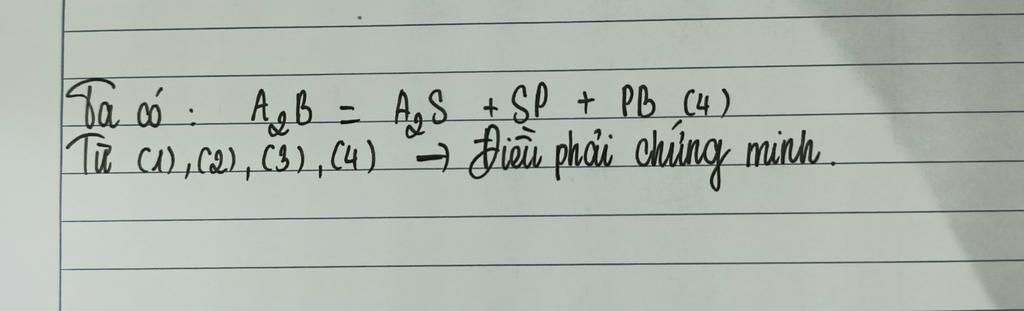 Ta có : A₂B = A₂S + SP + PB (4)
Từ (1), (2), (3), (4) → Điều phải chứng minh.